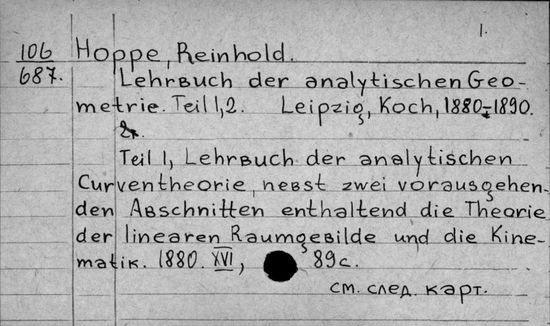 1.
106 Hoppe, Reinhold.
687. Lehrbuch der analytischen Geo-
metrie. Teil 1,2. Leipzig, Koch, 1880-1890.
Teil 1, Lehrbuch der analytischen
Curventheorie, nebst zwei vorausgehen-
den Abschnitten enthaltend die Theorie
der linearen Raumgebilde und die Kine-
matik. 1880. XVI, 89 с.
см. след. карт.